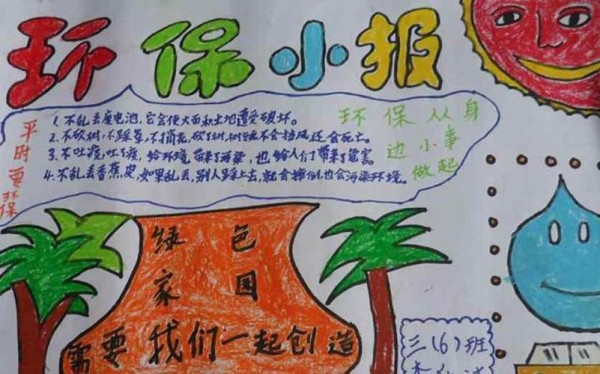 环保小报
平时要环保
1、不乱丢废电池，它会使大面积土地遭受破坏。
2、不砍树，不踩草，不摘花，
3、不吐痰，吐痰，给环境带来污染，也给人们带来危害。
4、不乱丢香蕉皮，如果乱丢，别人踩上去，就会摔倒，也会污染环境。
环保从身
边小事
做起
绿色
家国
需要我们一起创造
三(6)班